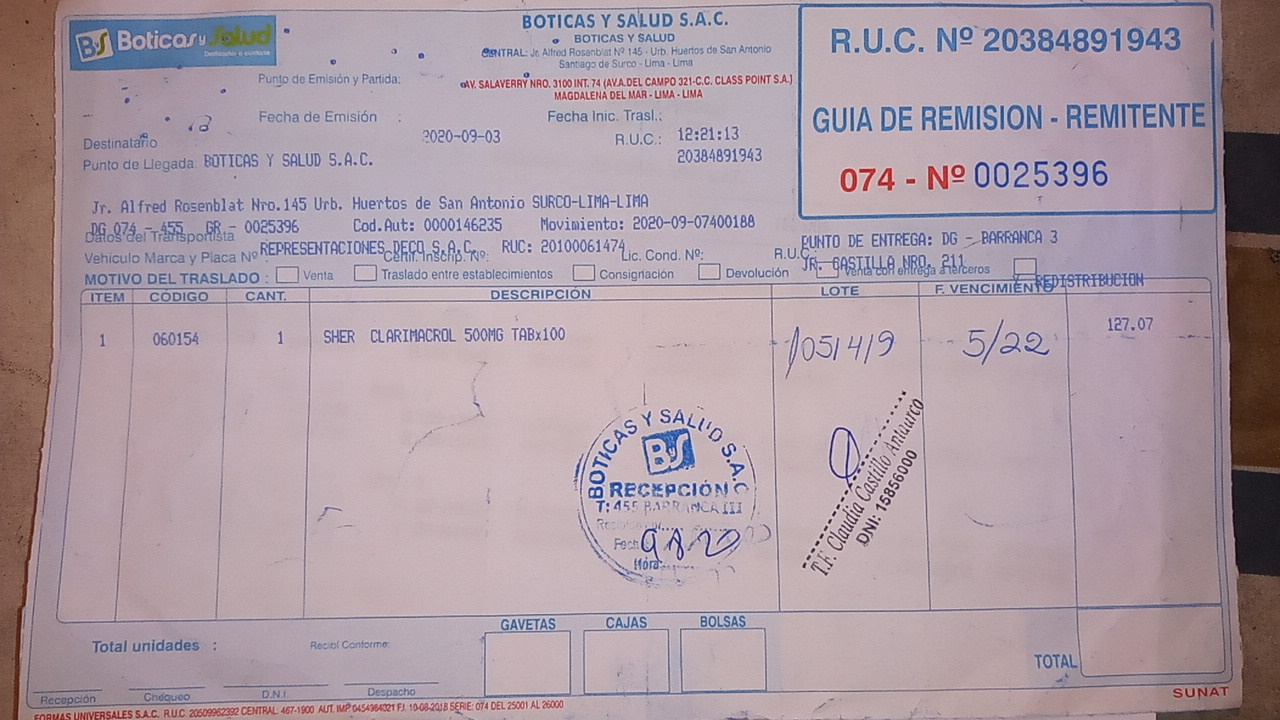 BS Boticas y Salud
BOTICAS Y SALUD S.A.C.
BOTICAS Y SALUD
CENTRAL: Jr. Alfred Rosenblat Nº 145 - Urb. Huertos de San Antonio
Santiago de Surco - Lima - Lima
Punto de Emisión y Partida:
AV. SALAVERRY NRO. 3100 INT. 74 (AV.A.DEL CAMPO 321-C.C. CLASS POINT S.A.)
MAGDALENA DEL MAR - LIMA - LIMA
R.U.C. Nº 20384891943
GUIA DE REMISION - REMITENTE
074 - Nº 0025396
Fecha de Emisión :
Fecha Inic. Trasl.:
2020-09-03
12:21:13
Destinatario
R.U.C.:
20384891943
Punto de Llegada: BOTICAS Y SALUD S.A.C.
Jr. Alfred Rosenblat Nro.145 Urb. Huertos de San Antonio SURCO-LIMA-LIMA
DG 074 - 455 GR - 0025396 Cod.Aut: 0000146235 Movimiento: 2020-09-07400188
Datos del Transportista
REPRESENTACIONES DECO S.A.C. RUC: 20100061474
PUNTO DE ENTREGA: DG - BARRANCA 3
Vehículo Marca y Placa Nº Certif. Inscrip. Nº: Lic. Cond. Nº: R.U.C.
JR. CASTILLA NRO. 211
MOTIVO DEL TRASLADO : Venta Traslado entre establecimientos Consignación Devolución Venta con entrega a terceros
REDISTRIBUCION
ITEM CÓDIGO CANT. DESCRIPCIÓN LOTE F. VENCIMIENTO
1 060154 1 SHER CLARIMACROL 500MG TABx100 1051419 5/22 127.07
BOTICAS Y SALUD S.A.C
BS
RECEPCIÓN
T: 455 BARRANCA III
Fecha 9.8.20
Hora:
T.F. Claudia Castillo Antaurco
DNI: 15856000
Total unidades :
Recibí Conforme:
GAVETAS CAJAS BOLSAS
TOTAL
Recepción Chequeo D.N.I. Despacho
SUNAT
FORMAS UNIVERSALES S.A.C. R.U.C. 20509962392 CENTRAL: 467-1900 AUT. IMP. 0454984021 F.I. 10-08-2018 SERIE: 074 DEL 25001 AL 26000